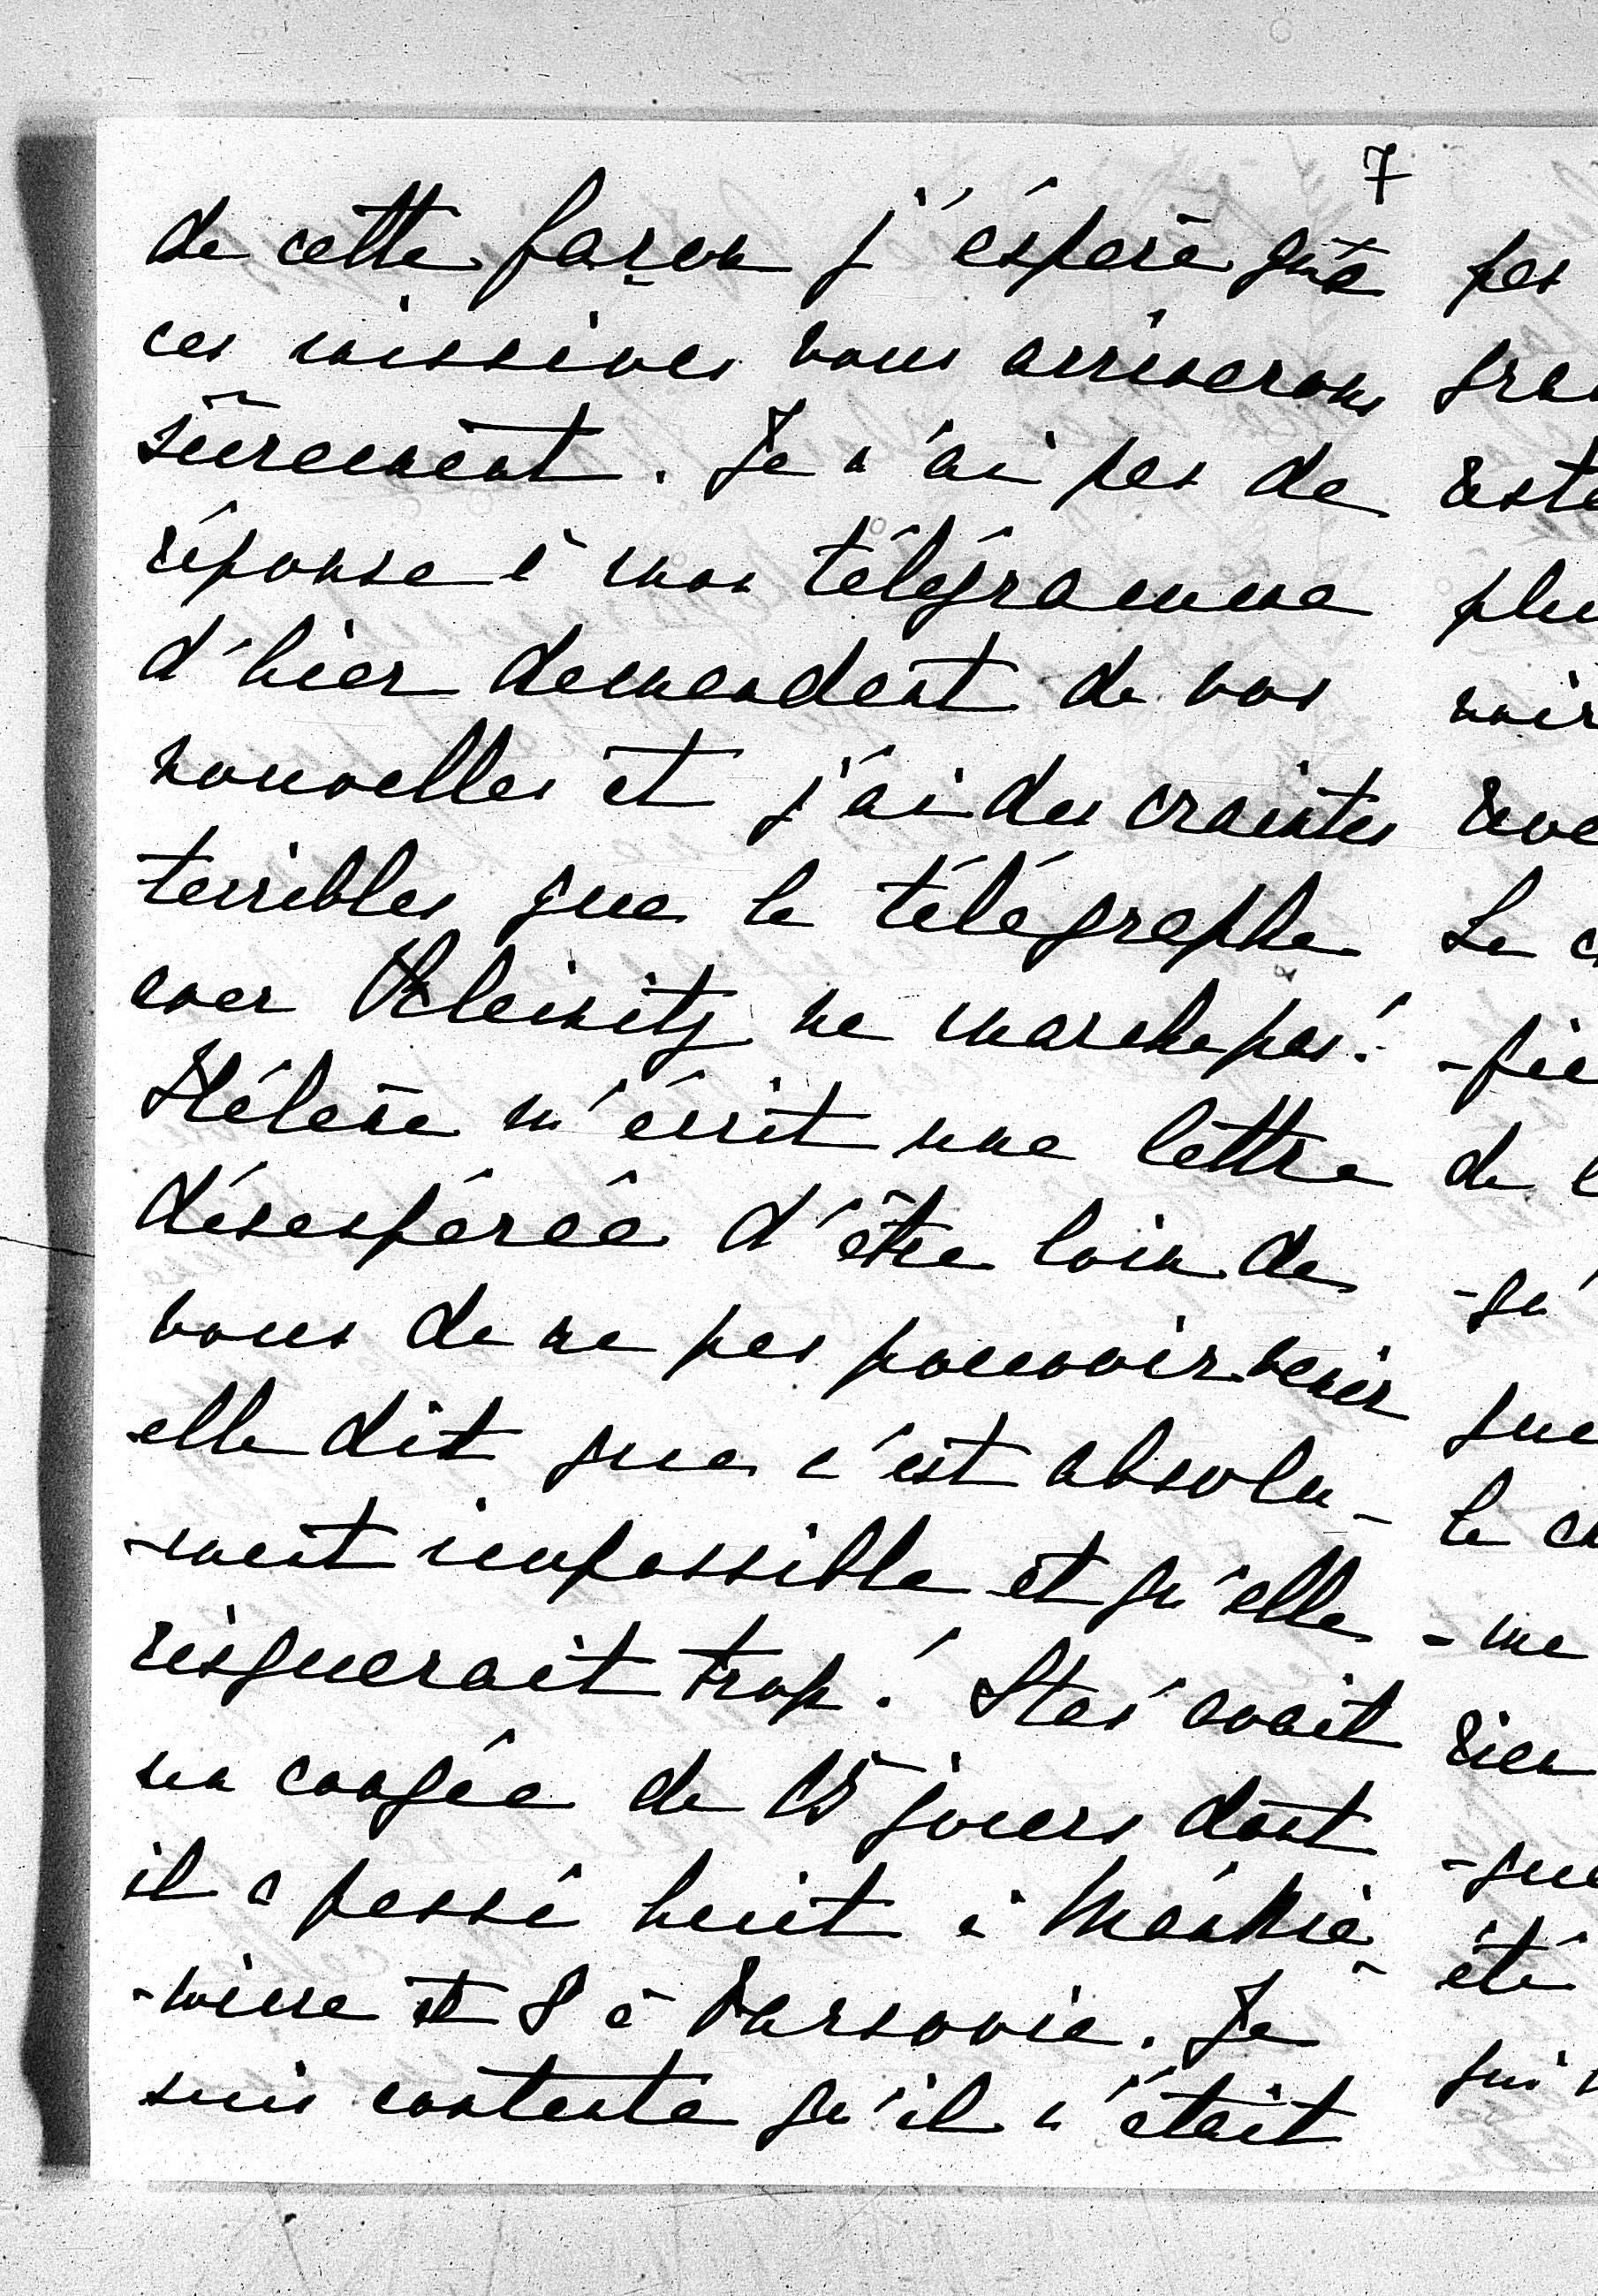 7
de cette façon j'éspère que
ces missives vous arriverons
sûrement. Je n'ai pas de
réponse à mon télégramme
d'hier demandant de vos
nouvelles et j'ai des craintes
terribles que le télégraphe
avec Kleinitz ne marche pas!
Hélène m'écrit une lettre
désespérée d'être loin de
vous de ne pas pouvoir venir
elle dit que c'est absolu-
-ment impossible et qu'elle
risquerait trop! Staś avait
un congée de 15 jours dont
il a passé huit à
et 8 à Varsovie. Je
suis contente qu'il n'était
pas
plu
voir
Le
de
-qu'
que
-me
rien
-que
été
qui